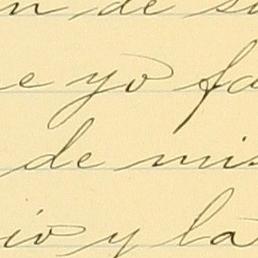 n de su
e yo fa
de mis
io y la